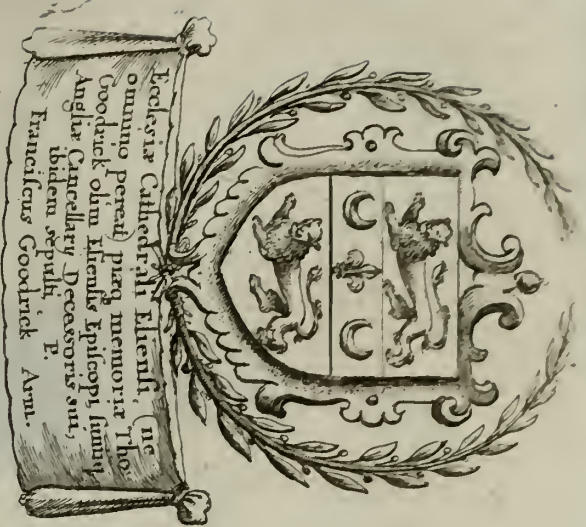 Ecclesiæ Cathedrali Eliensi, (ne
omnino pereat) piæq memoriæ Tho:
Goodrick olim Eliensis Episcopi, summi
Angliæ Cancellarij Decessoris sui,
ibidem sepulti, P.
Franciscus Goodrick Arm.